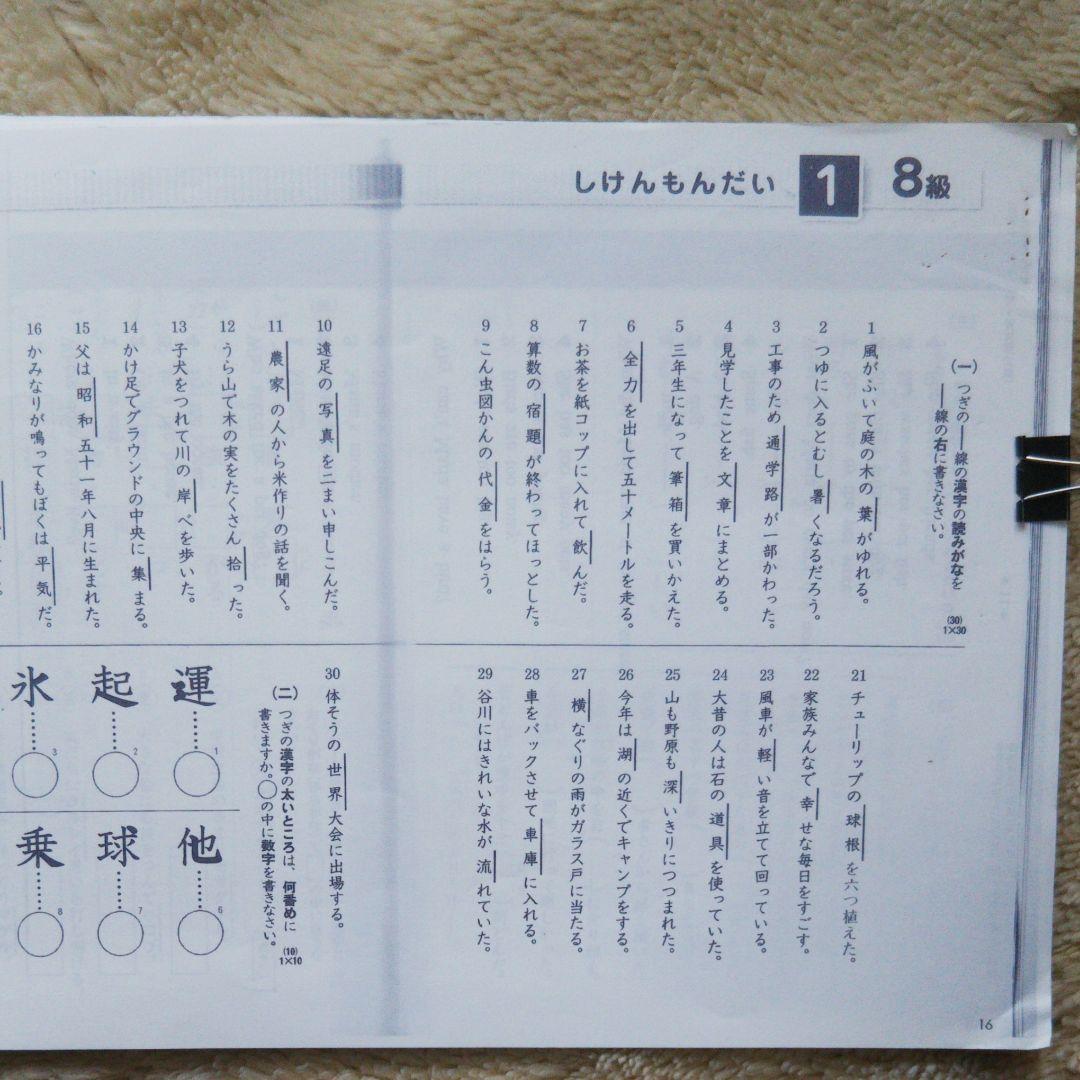 8級
1
しけんもんだい
(一) つぎの——線の漢字の読みがなを
——線の右に書きなさい。
(30)
1×30
1 風がふいて庭の木の葉がゆれる。
2 つゆに入るとむし暑くなるだろう。
3 工事のため通学路が一部かわった。
4 見学したことを文章にまとめる。
5 三年生になって筆箱を買いかえた。
6 全力を出して五十メートルを走る。
7 お茶を紙コップに入れて飲んだ。
8 算数の宿題が終わってほっとした。
9 こん虫図かんの代金をはらう。
10 遠足の写真を二まい申しこんだ。
11 農家の人から米作りの話を聞く。
12 うら山で木の実をたくさん拾った。
13 子犬をつれて川の岸べを歩いた。
14 かけ足でグラウンドの中央に集まる。
15 父は昭和五十一年八月に生まれた。
16 かみなりが鳴ってもぼくは平気だ。
21 チューリップの球根を六つ植えた。
22 家族みんなで幸せな毎日をすごす。
23 風車が軽い音を立てて回っている。
24 大昔の人は石の道具を使っていた。
25 山も野原も深いきりにつつまれた。
26 今年は湖の近くでキャンプをする。
27 横なぐりの雨がガラス戸に当たる。
28 車をバックさせて車庫に入れる。
29 谷川にはきれいな水が流れていた。
30 体そうの世界大会に出場する。
(二) つぎの漢字の太いところは、何番めに
書きますか。○の中に数字を書きなさい。
(10)
1×10
運 1
起 2
氷 3
他 6
球 7
乗 8
16